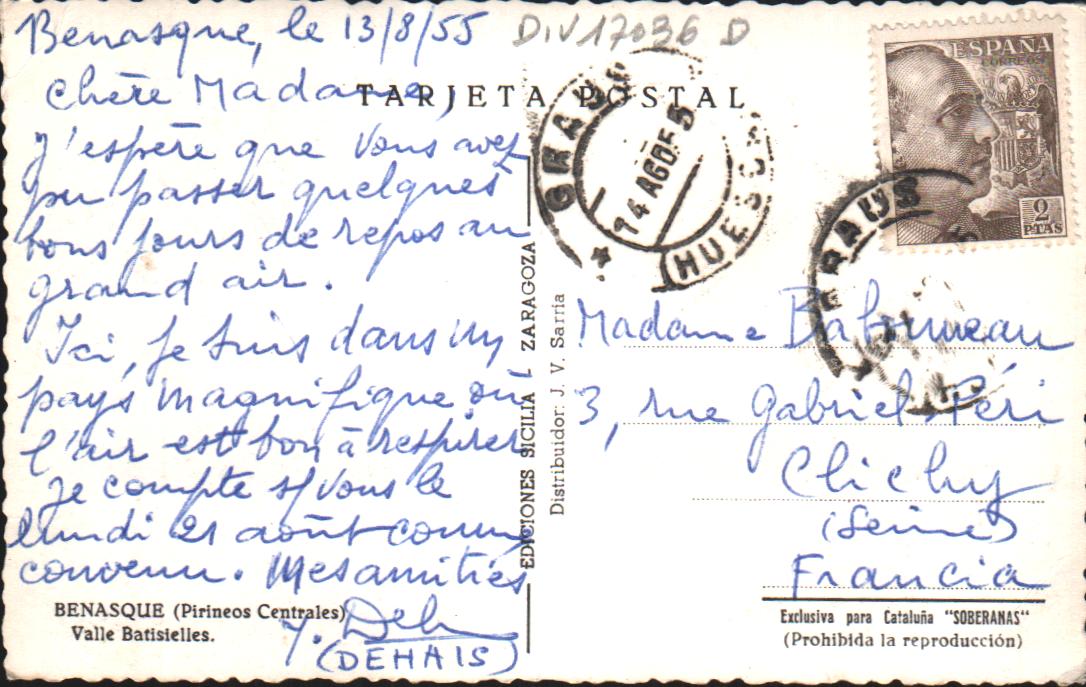 Benasque, le 13/8/55
DIV 17036 D
Chère Madame,
TARJETA POSTAL
J'espère que vous avez
pu passer quelques
bons jours de repos au
grand air.
Ici, je suis dans un
pays magnifique où
l'air est bon à respirer
Je compte s/ vous le
lundi 21 août comme
convenu. Mes amitiés
Y. Deh
(DEHAIS)
BENASQUE (Pirineos Centrales)
Valle Batisielles.
EDICIONES SICILIA / ZARAGOZA
Distribuidor: J. V. Sarria
GRAUS
14 AGO 55
(HUESCA)
ESPAÑA
CORREOS
2
PTAS
GRAUS
Madame
3, rue Gabriel Péri
Clichy
(Seine)
Francia
Exclusiva para Cataluña "SOBERANAS"
(Prohibida la reproducción)